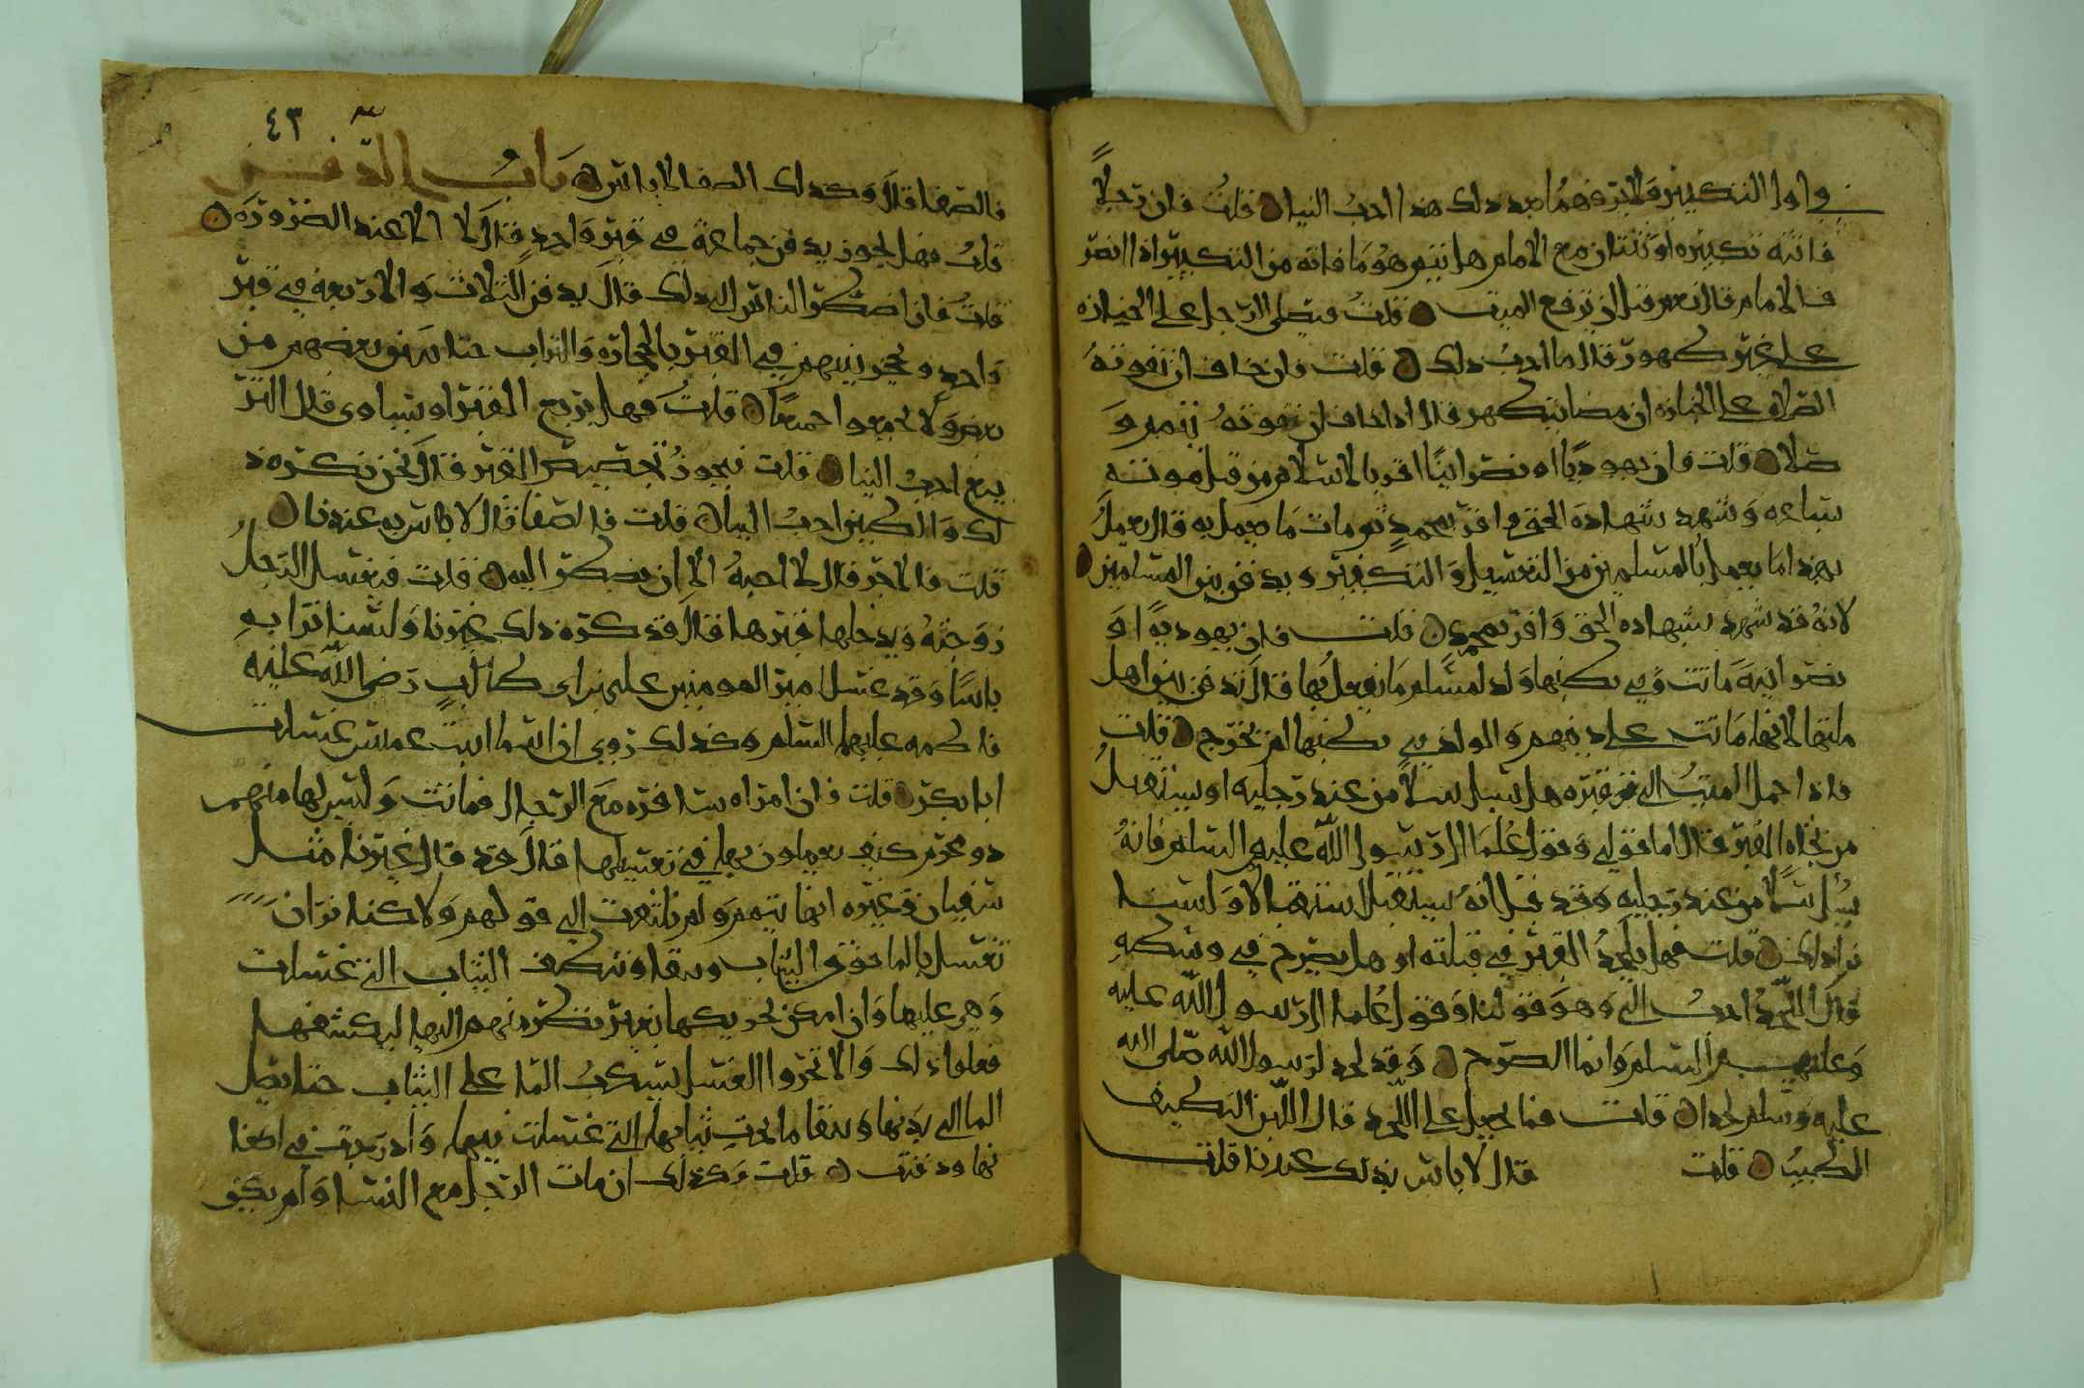 في اول التكبير ولا يرفعهما بعد ذلك هذا احب الينا قلت فان رجلا
فاتته تكبيره او ثنتان مع الامام هل يتم هو ما فاته من التكبير اذا انصر
ف الامام قال نعم قبل ان ترفع الميت قلت فيصلي الرجل على الجنازه
على غير طهور قال ما احب ذلك قلت فان خاف ان تفوته
الصلاه على الجنازه ان مضا يتطهر قال اذا خاف ان تفوته تيمم و
صلا قلت فان يهوديا او نصرانيا اقر بالاسلام من قبل موته
بساعه وشهد شهاده الحق واقر بمحمد ثم مات ما يعمل به قال يعمل
بهذا ما يعمل بالمسلمين من التغسيل والتكفين ويدفن بين المسلمين
لانه قد شهد بشهاده الحق واقر بمحمد قلت فان يهوديه او
نصرانيه ماتت وفي بطنها ولد لمسلم ما يفعل بها قال تدفن بين اهل
ملتها لانها ماتت على دينهم والولد في بطنها لم يخرج قلت
فاذا حمل الميت الى قبره هل يسل سلا من عند رجليه او يستقبل
من تجاه القبر قال اما قولي وقول علما ال رسول الله عليهم السلم فانه
يسل سلا من عند رجليه وقد قيل انه يستقبل استقبالا ولسنا
نرا ذلك قلت فهل يلحد القبر في قبلته او هل يضرح في وسطه
قال اللحد احب الي وهو قولنا وقول علما ال رسول الله عليه
وعليهم السلم وانما الضرح وقد لحد لرسول الله صلى الله
عليه وسلم لحدا قلت فما يجعل على اللحد قال اللبن النظيف
الطيب قلت قال لا باس بذلك عندنا قلت
٤٣
فالصفا قال وكذلك الصفا لا باس به باب الدفن
قلت فهل يجوز يدفن جماعة في قبر واحد قال لا الا عند الضروره
قلت فان اضطر الناس الى ذلك قال يدفن الثلاث والاربعه في قبر
واحد ويحجز بينهم في القبر بالحجاره والتراب حتا يبين بعضهم من
بعض ولا يجمعوا جميعا قلت فهل يربع القبر او يساوى قال التر
بيع احب الينا قلت فيجوز تجصيص القبر قال نحن نكره ذ
لك والطين احب الينا قلت فالصفا قال لا باس به عندنا
قلت فالاجر قال لا احبه الا ان يضطر اليه قلت فيغسل الرجل
زوجته ويدخلها قبرها قال قد كره ذلك غيرنا ولسنا نرا به
باسا وقد غسل امير المومنين علي بن ابي طالب رضي الله عليه
فاطمه عليها السلم وكذلك روي ان اسما ابنت عميس غسلت
ابا بكر قلت فان امراه سافره مع الرجال فماتت وليس لها منهم
ذو محرم كيف يعملون بها في تغسيلها قال قد قال غيرنا مثل
سفيان وغيره انها تيمم ولم نلتفت الى قولهم ولاكنا نرا ان
تغسل بالما فوق الثياب وينقا وتنظف الثياب التي غسلت
وهي عليها وان امكن تحويطها بغير نظر منهم اليها ليكشفها
فعلوا ذلك والا تحروا الغسل بسكب الما على الثياب حتا يصل
الما الى بدنها وينقا ما تحت ثيابها التي غسلت فيها وادرجت في اكفا
نها ودفنت قلت وكذلك ان مات الرجل مع النسا ولم يكن